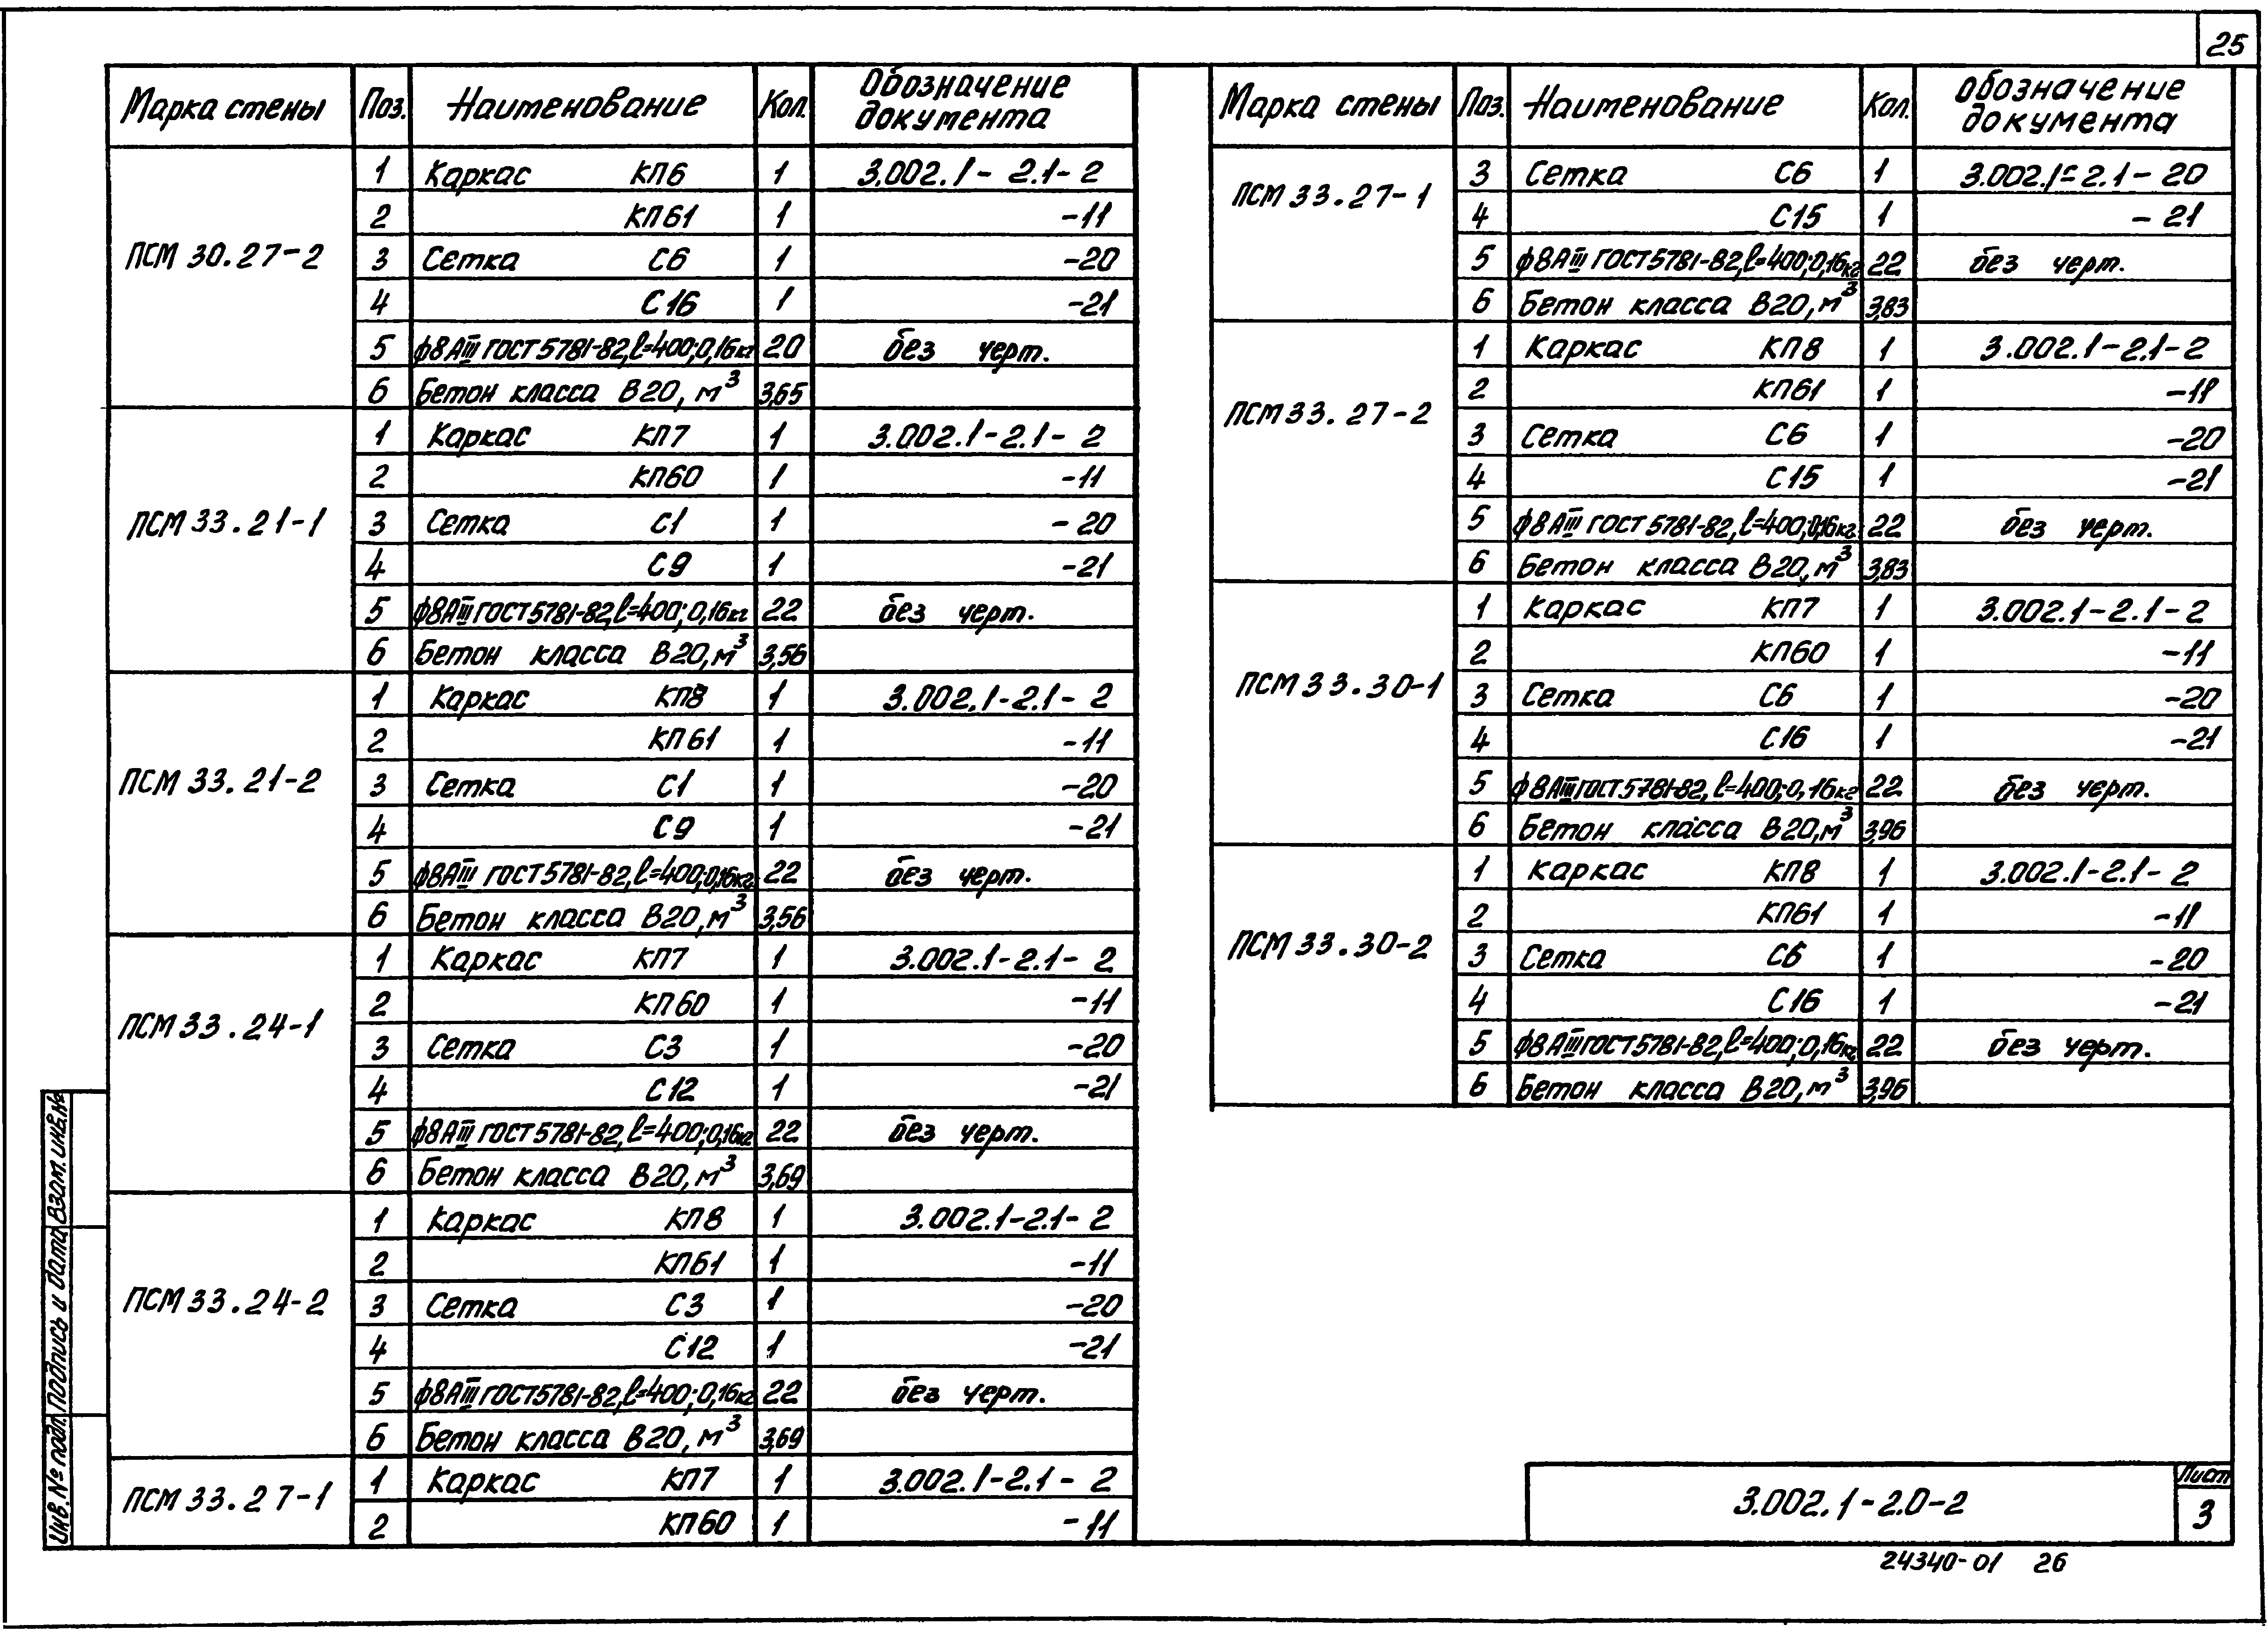 25
Марка стены Поз. Наименование Кол. Обозначение документа
ПСМ 30.27-2
1 Каркас КП6 1 3.002.1-2.1-2
2 КП61 1 -11
3 Сетка С6 1 -20
4 С16 1 -21
5 ф8АIII ГОСТ 5781-82, l=400; 0,16кг 20 без черт.
6 Бетон класса В20, м³ 3,65
ПСМ 33.21-1
1 Каркас КП7 1 3.002.1-2.1-2
2 КП60 1 -11
3 Сетка С1 1 -20
4 С9 1 -21
5 ф8АIII ГОСТ 5781-82, l=400; 0,16кг 22 без черт.
6 Бетон класса В20, м³ 3,56
ПСМ 33.21-2
1 Каркас КП8 1 3.002.1-2.1-2
2 КП61 1 -11
3 Сетка С1 1 -20
4 С9 1 -21
5 ф8АIII ГОСТ 5781-82, l=400; 0,16кг 22 без черт.
6 Бетон класса В20, м³ 3,56
ПСМ 33.24-1
1 Каркас КП7 1 3.002.1-2.1-2
2 КП60 1 -11
3 Сетка С3 1 -20
4 С12 1 -21
5 ф8АIII ГОСТ 5781-82, l=400; 0,16кг 22 без черт.
6 Бетон класса В20, м³ 3,69
ПСМ 33.24-2
1 Каркас КП8 1 3.002.1-2.1-2
2 КП61 1 -11
3 Сетка С3 1 -20
4 С12 1 -21
5 ф8АIII ГОСТ 5781-82, l=400; 0,16кг 22 без черт.
6 Бетон класса В20, м³ 3,69
ПСМ 33.27-1
1 Каркас КП7 1 3.002.1-2.1-2
2 КП60 1 -11
Марка стены Поз. Наименование Кол. обозначение документа
ПСМ 33.27-1
3 Сетка С6 1 3.002.1-2.1-20
4 С15 1 -21
5 ф8АIII ГОСТ 5781-82, l=400; 0,16кг 22 без черт.
6 Бетон класса В20, м³ 3,83
ПСМ 33.27-2
1 Каркас КП8 1 3.002.1-2.1-2
2 КП61 1 -11
3 Сетка С6 1 -20
4 С15 1 -21
5 ф8АIII ГОСТ 5781-82, l=400; 0,16кг 22 без черт.
6 Бетон класса В20, м³ 3,83
ПСМ 33.30-1
1 Каркас КП7 1 3.002.1-2.1-2
2 КП60 1 -11
3 Сетка С6 1 -20
4 С16 1 -21
5 ф8АIII ГОСТ 5781-82, l=400; 0,16кг 22 без черт.
6 Бетон класса В20, м³ 3,96
ПСМ 33.30-2
1 Каркас КП8 1 3.002.1-2.1-2
2 КП61 1 -11
3 Сетка С6 1 -20
4 С16 1 -21
5 ф8АIII ГОСТ 5781-82, l=400; 0,16кг 22 без черт.
6 Бетон класса В20, м³ 3,96
Инв. № подл. Подпись и дата Взам. инв. №
3.002.1-2.0-2
Лист
3
24340-01 26